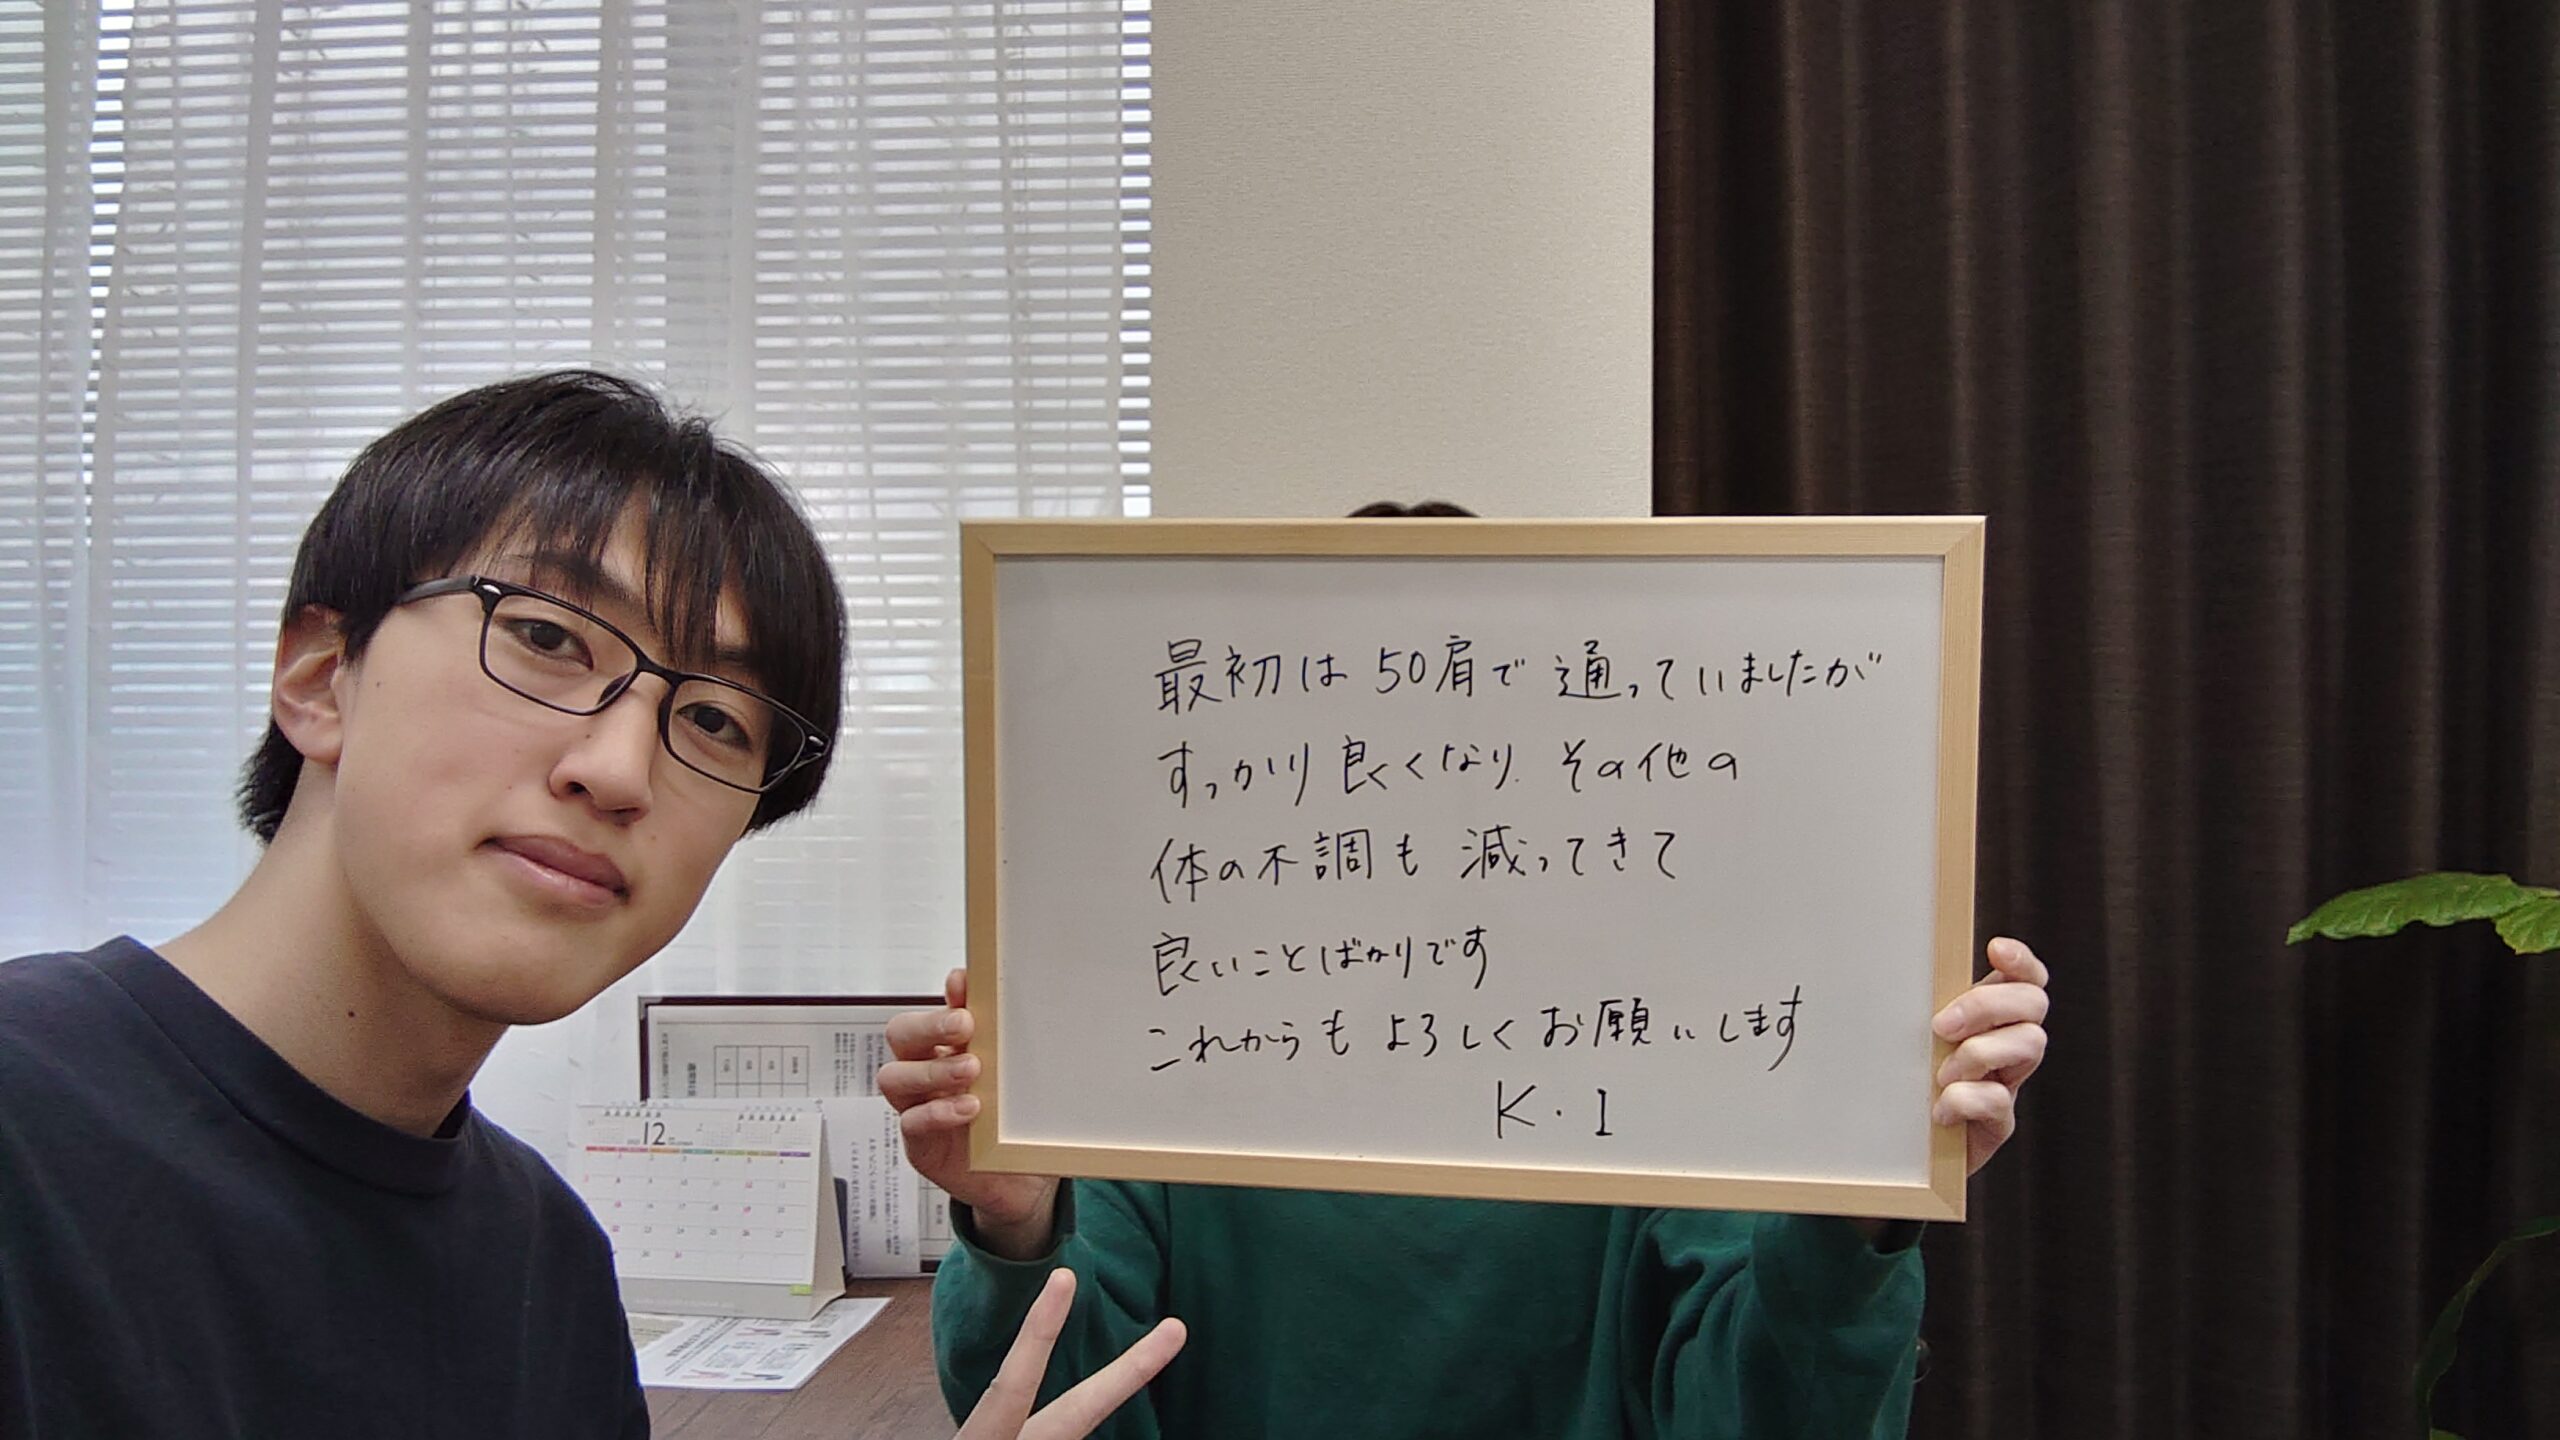 最初は50肩で通っていましたが
すっかり良くなり、その他の
体の不調も減ってきて
良いことばかりです
これからもよろしくお願いします
K・I
12